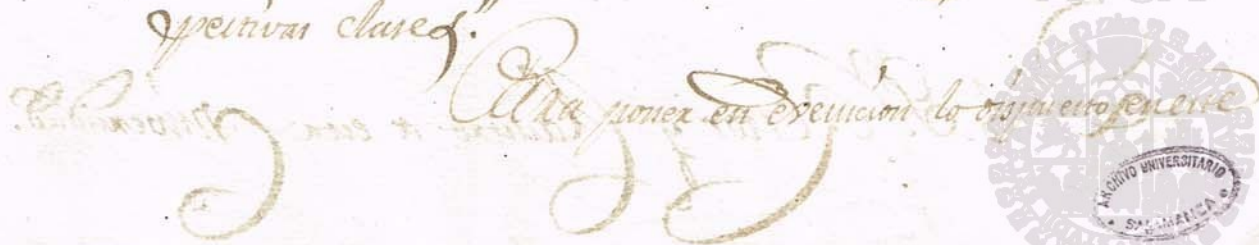 spectivas clases.
Para poner en execucion lo dispuesto
ARCHIVO UNIVERSITARIO
SALAMANCA